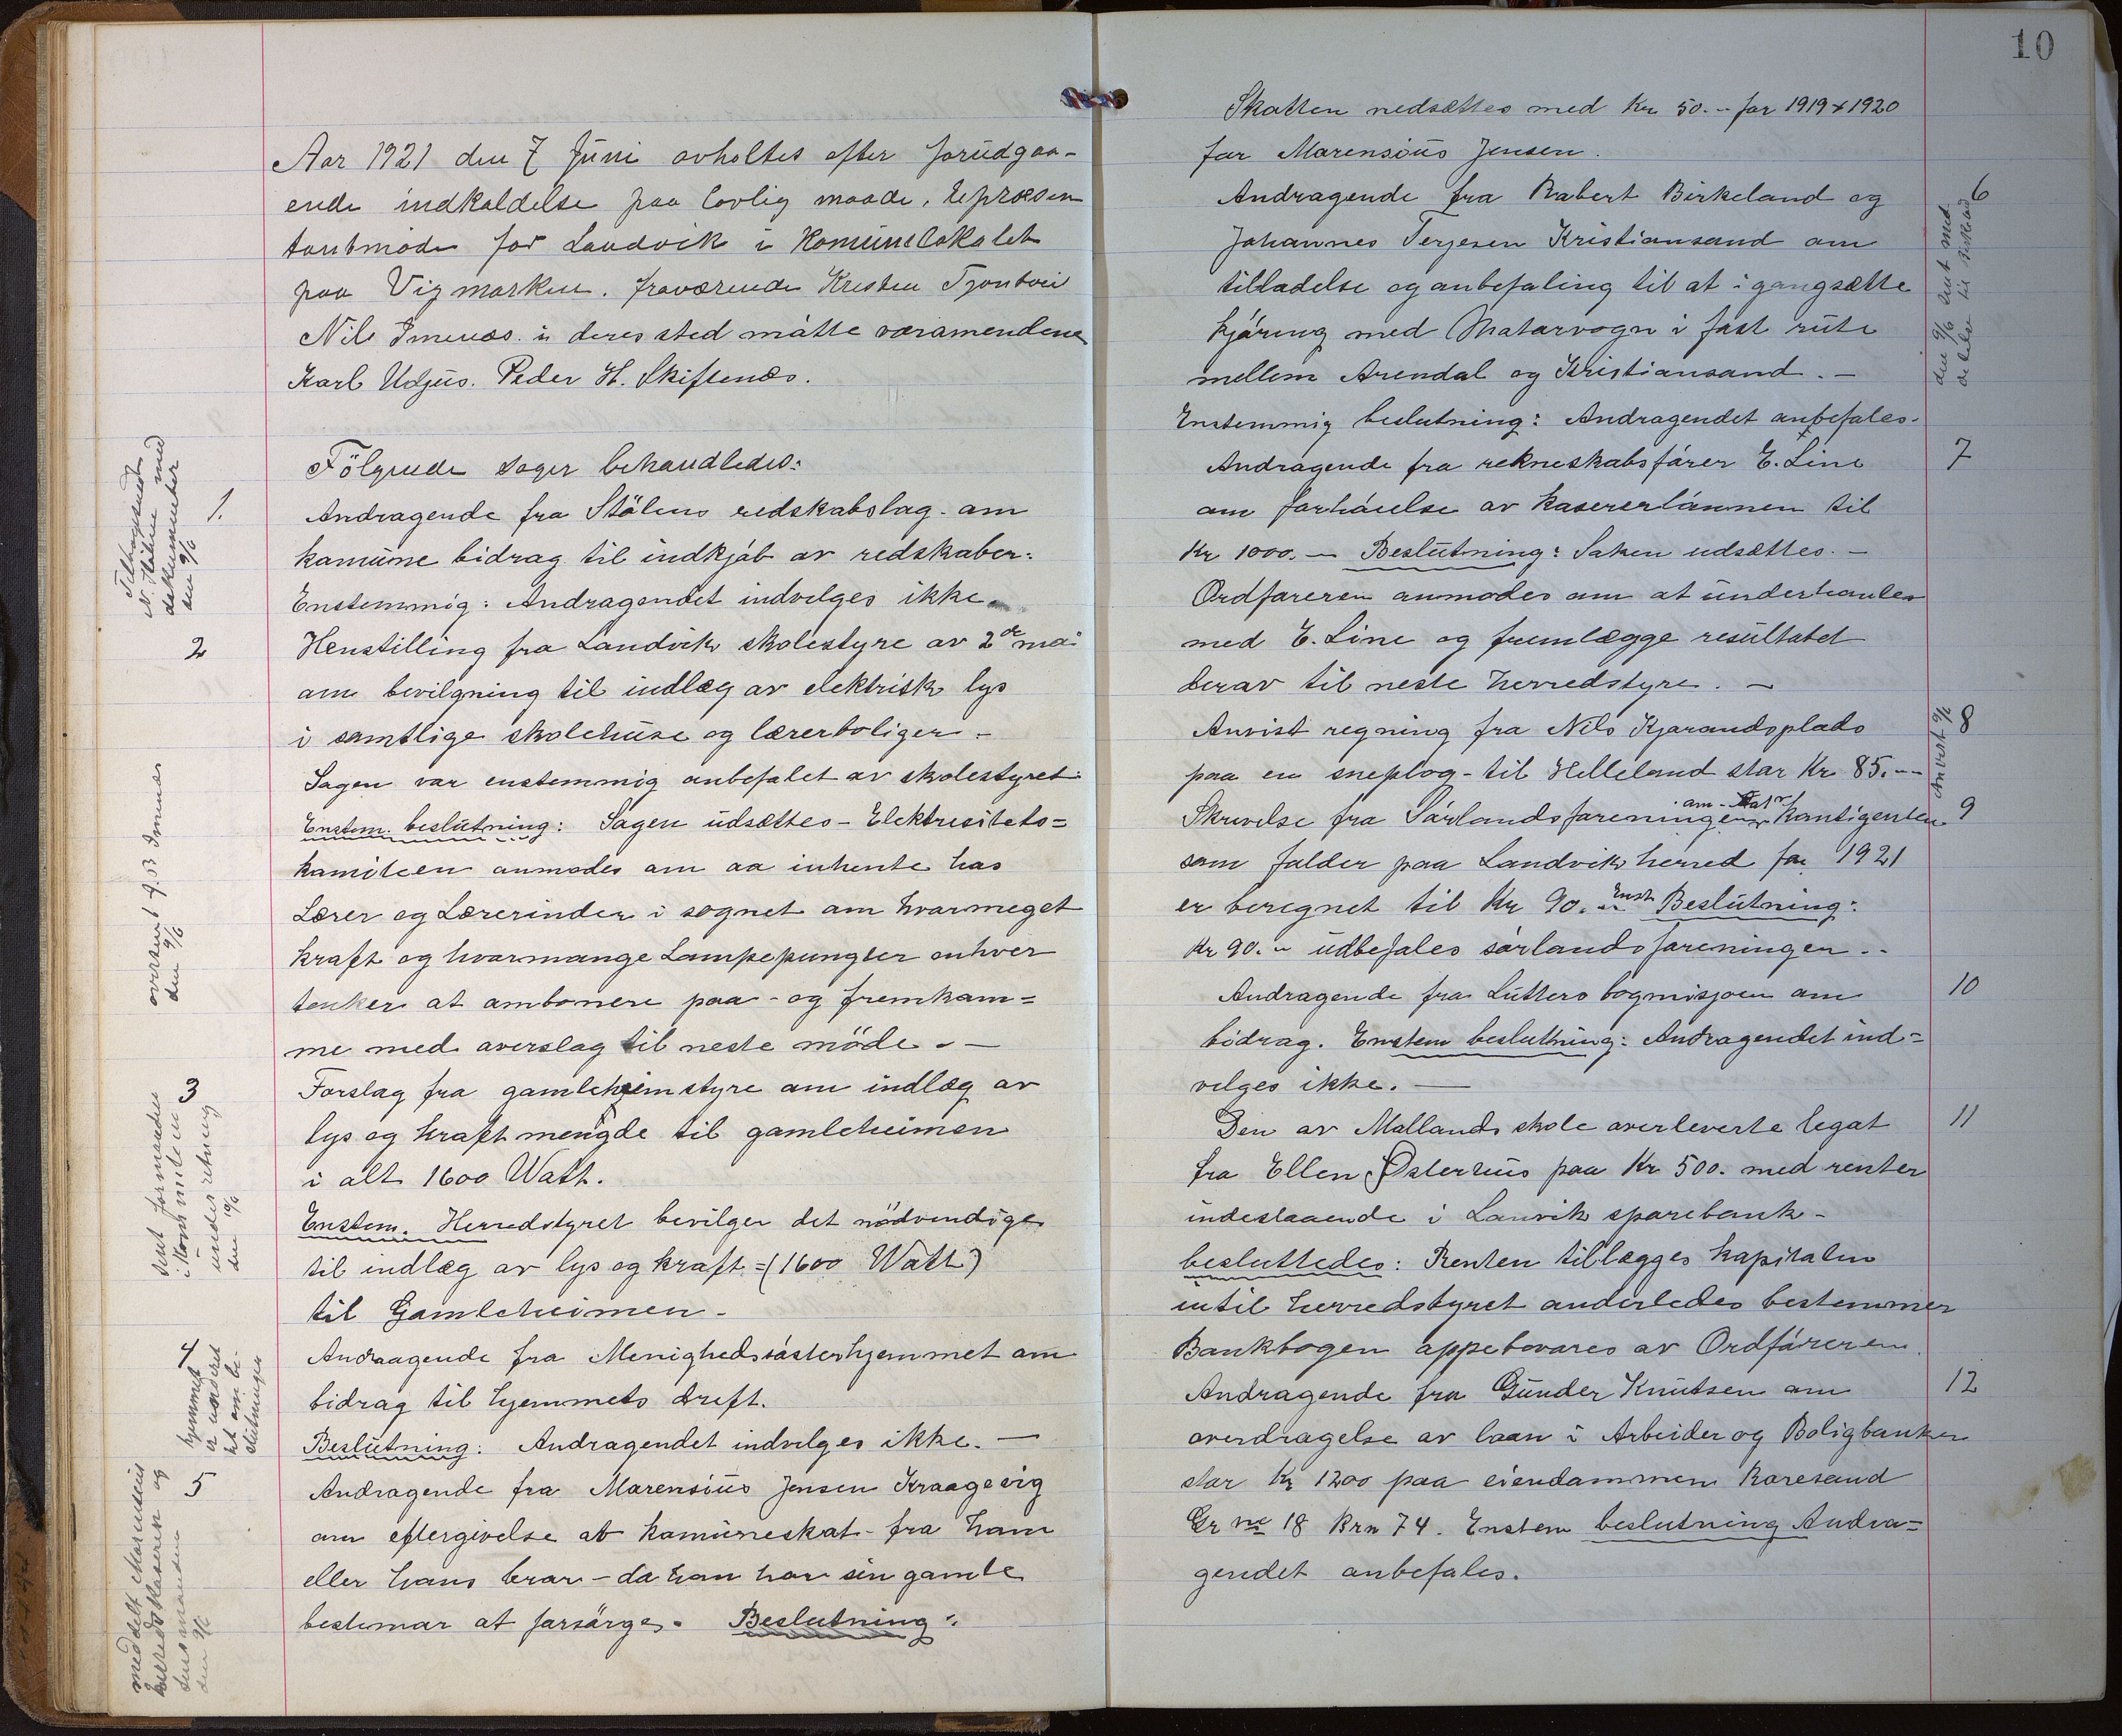 Aar 1921 den 7 Juni avholtes efter forudgaa-
ende indkaldelse paa lovlig maade, repræsen
tantmøde for Landvik i Komunelokalet
paa Vigmarken. fraværende Kresten Tjontvei
Nils Imenes. i deres sted møtte varamendene
Karl Udjus. Peder H. Skiftenes.
Fölgende sager behandledes:
Tilbagesendt
N. Hatne med
dokumenter
den 9/6
1.
Andragende fra Stölens redskabslag. om
komune bidrag til indkjøb av redskaber:
Enstemmig: Andragendet indvelges ikke.
2
Henstilling fra Landvik skolestyre av 2de mai
om bevilgning til indlæg av elektrisk lys
i samtlige skolehuse og lærerboliger.-
Sagen var enstemmig anbefalet av skolestyret.
oversent f. 53 Imenes
den 9/6
Enstem. beslutning: Sagen udsættes - Elektresitets=
komiteen anmodes om aa inhente hos
Lærer og Lærerinder i sognet om hvormeget
kraft og hvormange Lampepungter enhver
tenker at ambonere paa - og fremkom=
me med overslag til neste möde. -
3
Forslag fra gamleheimstyre om indlæg av
lys og kraft mengde til gamleheimen
i alt 1600 Watt.
sent formanden
i Komiteen
underretning
den 10/6
Enstem. Herredstyret bevilger det nödvendige
til indlæg av lys og kraft = (1600 Watt)
til Gamleheimen.
4
hjemmet
er underet
tet om be-
slutningen
Andraagende fra Menighedsøsterhjemmet om
bidrag til hjemmets dreft.
Beslutning: Andragendet indvelges ikke. -
5
meddelt Marensius
herredskasseren og
lensmanden
den 9/6
Andragende fra Marensius Jensen Kraagevig
om eftergivelse at komuneskat - fra ham
eller hans bror - da han har sin gamle
bestemor at forsörge. Beslutning:
10
Skatten nedsættes med Kr 50.- for 1919 + 1920
for Marensius Jensen.
6
Andragende fra Robert Birkeland og
Johannes Terjesen Kristiansand om
tilladelse og anbefaling til at igangsætte
kjøring med Motorvogn i fast rute
mellem Arendal og Kristiansand. -
den 9/6 sent med
deleelse til Birkeland
Enstemmig beslutning: Andragendet anbefales.
7
Andragende fra rekneskabsfører E. Line
om forhøielse av kasererlønnen til
Kr 1000. - Beslutning: Saken udsættes. -
Ordføreren anmodes om at underhanles
med E. Line og fremlægge resultatet
derav til neste herredstyre. -
8
Anvist 9/6
Anvist regning fra Nils Kjorandsplads
paa en sneplog - til Helleland stor Kr 85.--
9
Skrivelse fra Sørlandsforeningen om kontigenten
som falder paa Landvik herred for 1921
er beregnet til Kr 90.- Enst Beslutning:
Kr 90.- udbefales sørlandsforeningen. -
10
Andragende fra Lutters bogmisjoen om
bidrag. Enstem beslutning: Andragendet ind=
velges ikke. -
11
Den av Mollands skole overleverte legat
fra Ellen Østerhus paa Kr 500. med renter
indestaaende i Lanvik sparebank -
besluttedes: Renten tillægges kapitalen
intil herredstyret anderledes bestemmer
Bankbogen oppebevares av Ordføreren.
12
Andragende fra Gunder Knutsen om
overdragelse av laan i Arbeider og Boligbanken
stor Kr 1200 paa eiendommen Roresand
Gr no 18 Brn 74. Enstem beslutning Andra=
gendet anbefales.